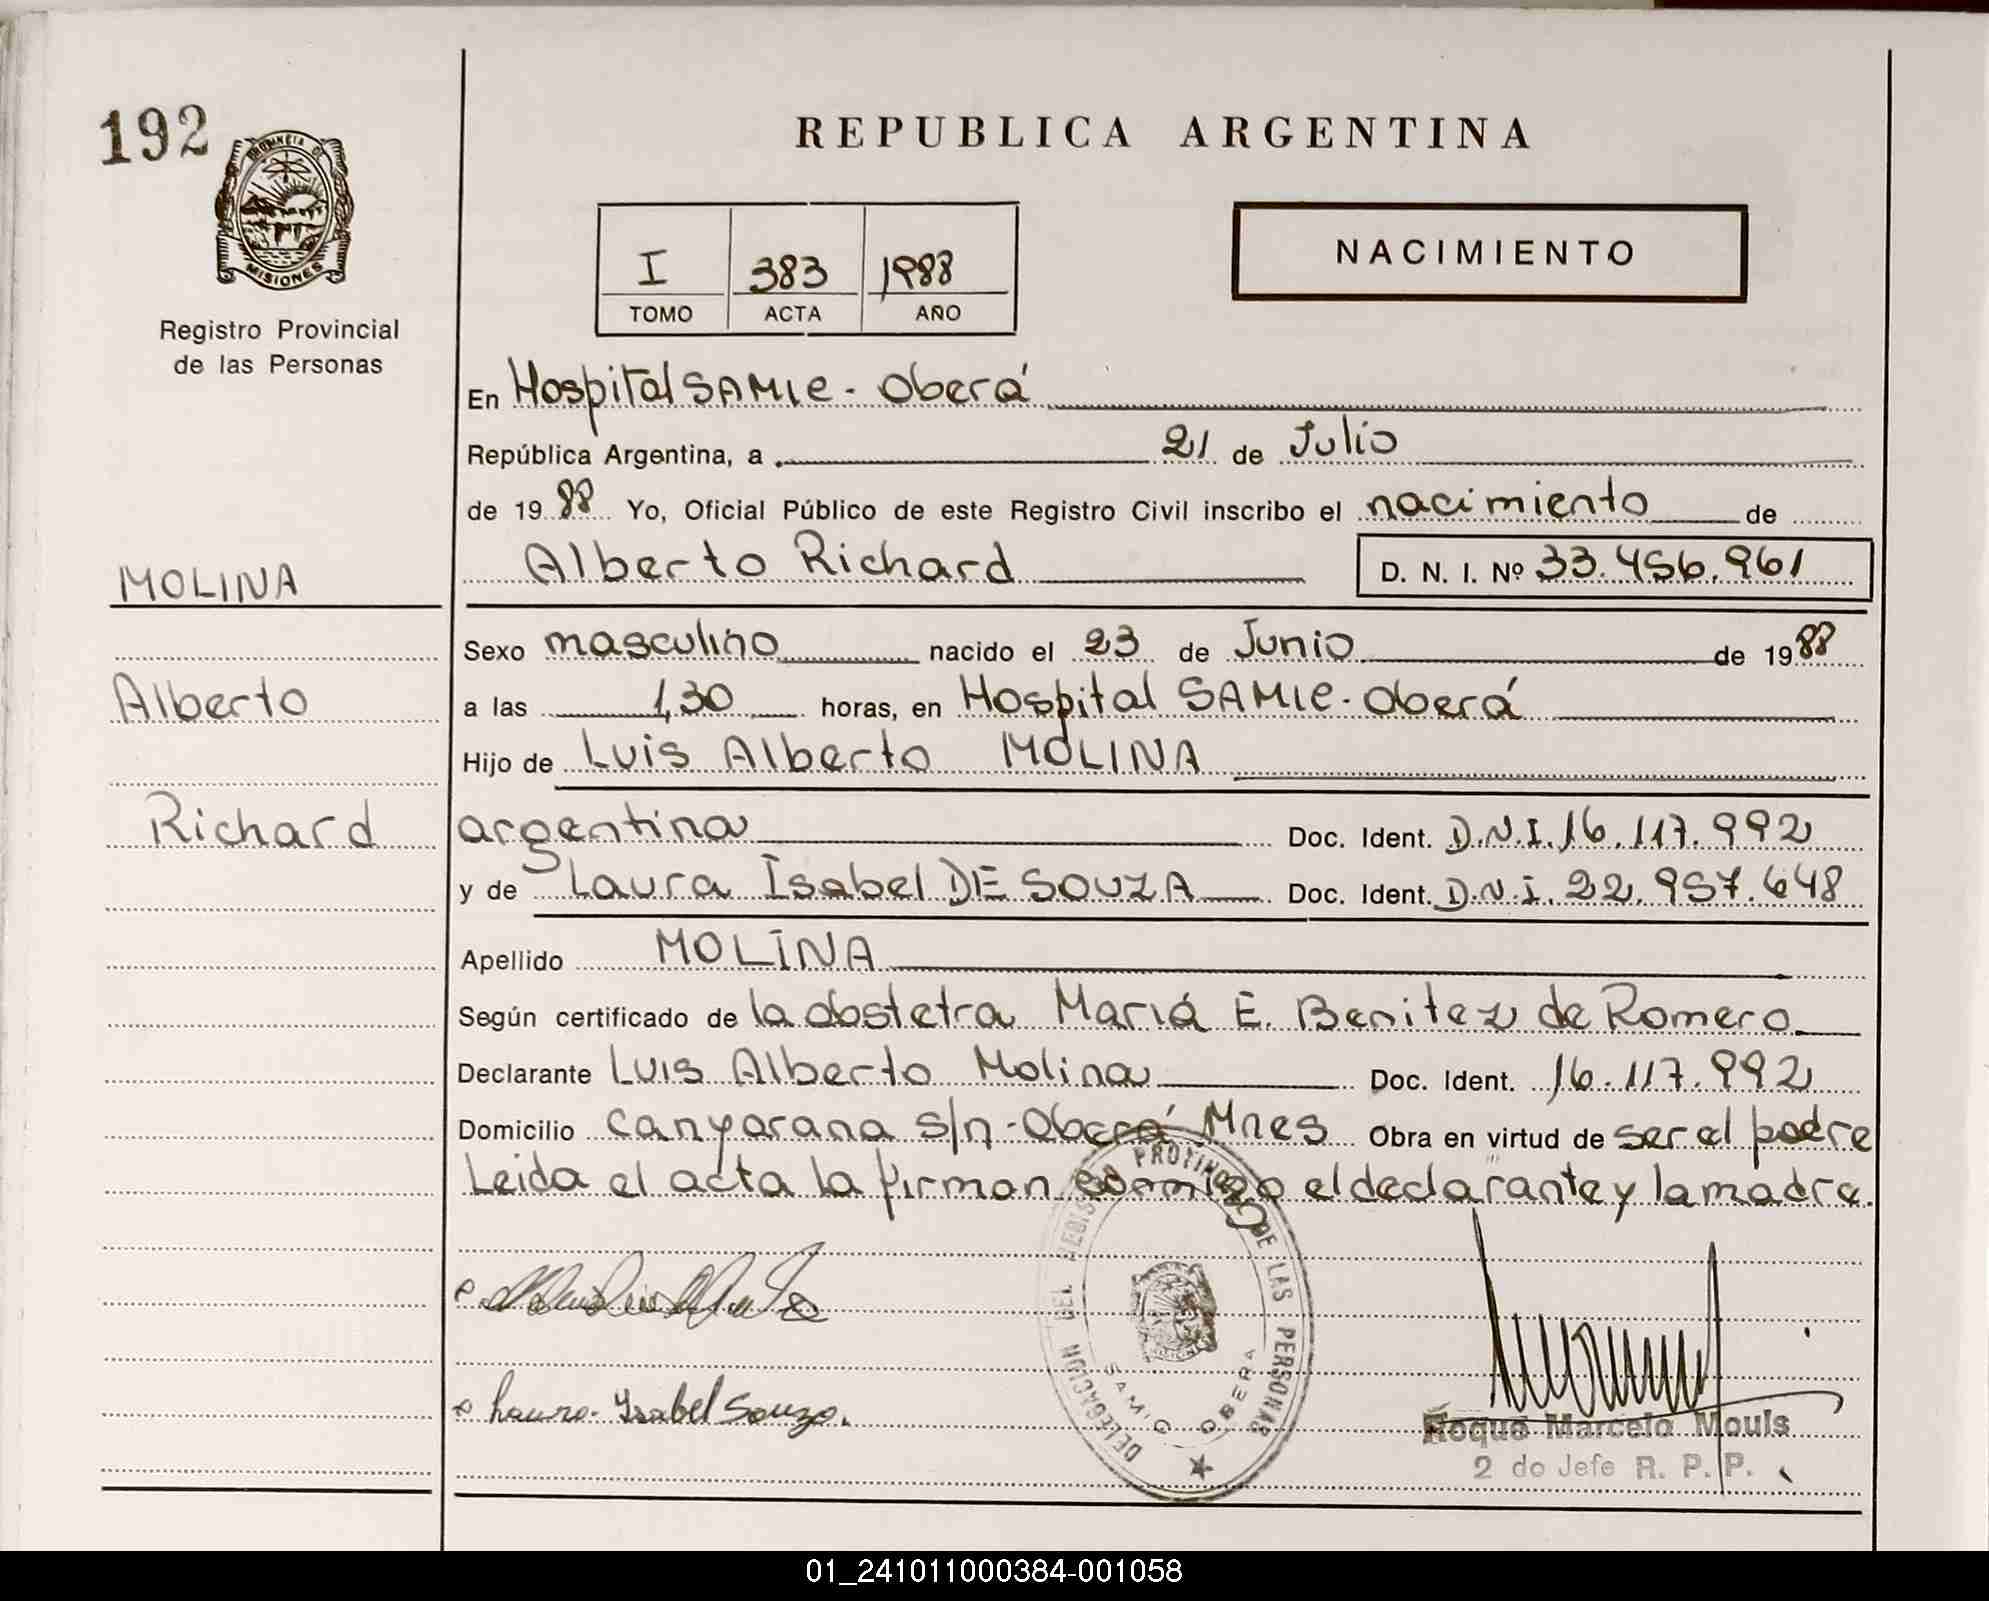 192
PROVINCIA DE
MISIONES
Registro Provincial
de las Personas
MOLINA
Alberto
Richard
REPUBLICA ARGENTINA
I 383 1988
TOMO ACTA AÑO
NACIMIENTO
En Hospital SAMIC - Oberá
República Argentina, a 21 de Julio
de 19 88 Yo, Oficial Público de este Registro Civil inscribo el nacimiento de
Alberto Richard D. N. I. Nº 33.456.961
Sexo masculino nacido el 23 de Junio de 19 88
a las 1,30 horas, en Hospital SAMIC - Oberá
Hijo de Luis Alberto MOLINA
argentina Doc. Ident. D.N.I. 16.117.992
y de Laura Isabel DE SOUZA Doc. Ident. D.N.I. 22.957.648
Apellido MOLINA
Según certificado de la obstetra Mariá E. Benitez de Romero
Declarante Luis Alberto Molina Doc. Ident. 16.117.992
Domicilio canyarana s/n - Oberá Mnes Obra en virtud de ser el padre
Leida el acta la firman conmigo el declarante y la madre.
Isabel Souza.
DELEGACION DEL REGISTRO PROVINCIAL DE LAS PERSONAS
SAMIC OBERA
Roque Marcelo Mouls
2 do Jefe R. P. P.
01_241011000384-001058